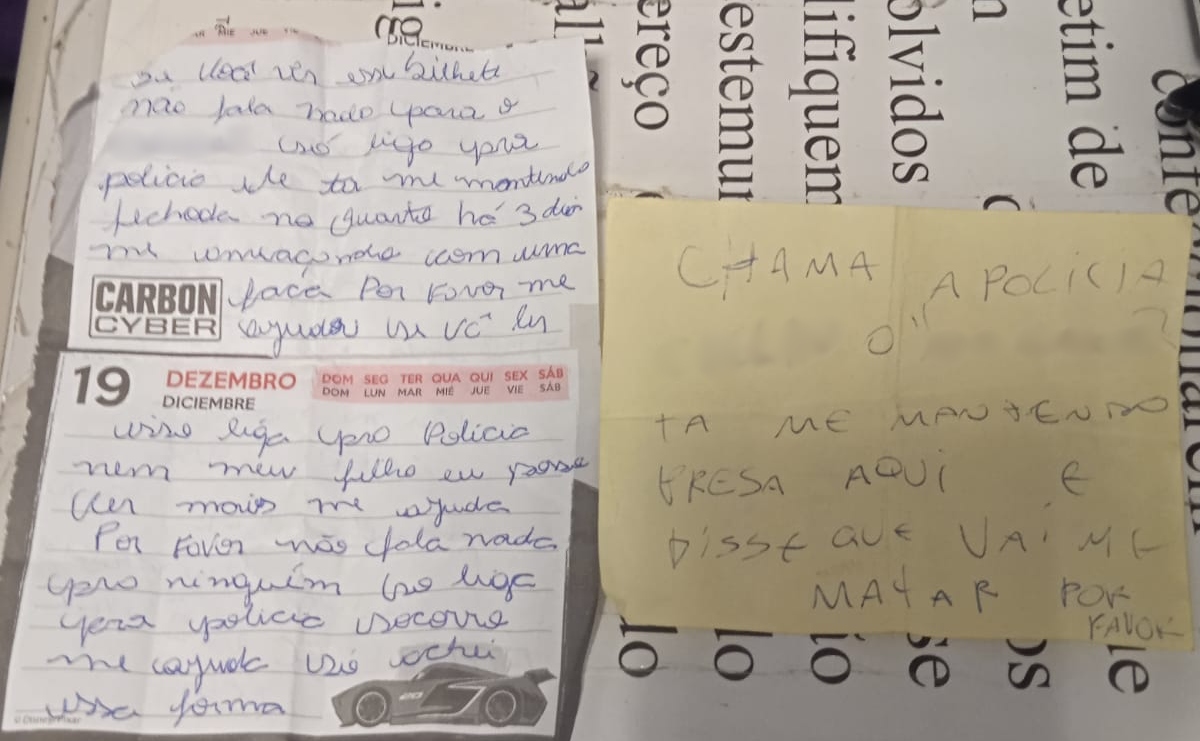 DICIEMBRE
MIE JUE
se você ver esse bilhete
não fala nada para o
só liga pra
policia ele ta me mantendo
fechada no quarto há 3 dias
me ameaçando com uma
faca Por Favor me
CARBON
CYBER
ajudar se vc ler
19
DEZEMBRO
DICIEMBRE
DOM SEG TER QUA QUI SEX SÁB
DOM LUN MAR MIÉ JUE VIE SÁB
isso liga pro Policia
nem meu filho eu posso
ver mais me ajuda
Por Favor não fala nada
pro ninguém só liga
pera policia socorro
me ajuda só achei
essa forma
CHAMA A POLICIA
O
TA ME MANTENDO
PRESA AQUI E
DISSE QUE VAI ME
MATAR POR
FAVOR
ereço
estemun
lifiquem
olvidos
etim de